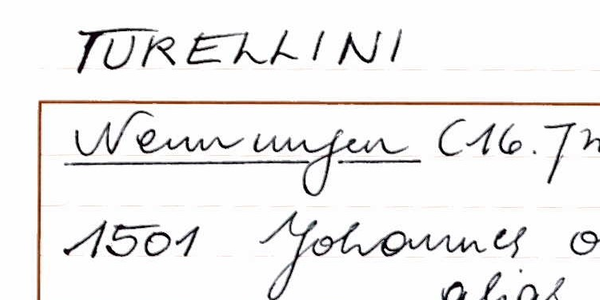 TURELLINI
Nennungen (16. J
1501 Johannes
alias